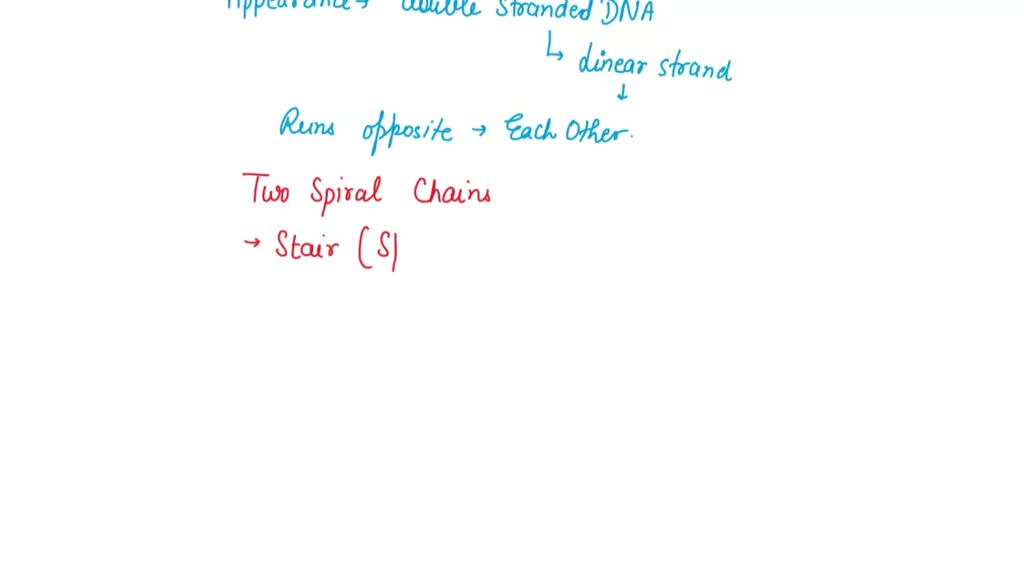 Appearance → double stranded DNA
↳ linear strand
↓
Runs opposite → Each Other.
Two Spiral Chains
→ Stair (S)